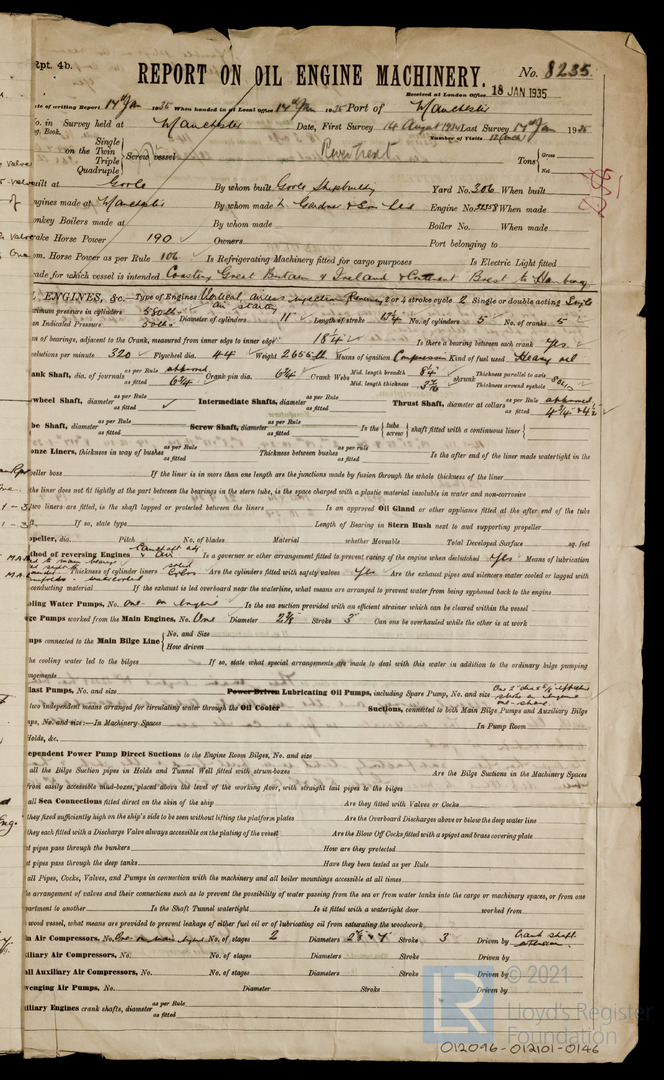 Rpt. 4b.
REPORT ON OIL ENGINE MACHINERY.
No. 8235.
Received at London Office 18 JAN 1935
te of writing Report 14th Jan 1935 When handed in at Local Office 14th Jan 1935 Port of Manchester
o. in Survey held at Manchester Date, First Survey 14 August 1934 Last Survey 14th Jan 1935
g. Book. Number of Visits
Single
on the Twin
Triple
Quadruple
Screw vessel River Trent Tons Gross
Net
uilt at Goole By whom built Goole Shipbuildg Yard No. 306 When built
ngines made at Manchester By whom made L. Gardner & Sons Ltd Engine No. 32358 When made
onkey Boilers made at By whom made Boiler No. When made
rake Horse Power 190 Owners Port belonging to
om. Horse Power as per Rule 106 Is Refrigerating Machinery fitted for cargo purposes Is Electric Light fitted
rade for which vessel is intended Coasting Great Britain & Ireland & Continent Brest to Hamburg
L ENGINES, &c. Type of Engines Vertical airless injection Reversing 2 or 4 stroke cycle 2 Single or double acting Single
air starting
aximum pressure in cylinders 550 lbs Diameter of cylinders 11" Length of stroke No. of cylinders 5 No. of cranks 5
an Indicated Pressure
n of bearings, adjacent to the Crank, measured from inner edge to inner edge Is there a bearing between each crank Yes
evolutions per minute 320 Flywheel dia. 44 Weight 2655 lb Means of ignition Compression Kind of fuel used Heavy oil
ank Shaft, dia. of journals as per Rule approved
as fitted 6¾ Crank pin dia. 6¾ Crank Webs Mid. length breadth 8¼" Mid. length thickness shrunk Thickness parallel to axis
Thickness around eyehole
wheel Shaft, diameter as per Rule
as fitted Intermediate Shafts, diameter as per Rule
as fitted Thrust Shaft, diameter at collars as per Rule approved
as fitted
be Shaft, diameter as per Rule
as fitted Screw Shaft, diameter as per Rule
as fitted Is the tube
screw shaft fitted with a continuous liner
onze Liners, thickness in way of bushes as per Rule
as fitted Thickness between bushes as per rule
as fitted Is the after end of the liner made watertight in the
peller boss If the liner is in more than one length are the junctions made by fusion through the whole thickness of the liner
the liner does not fit tightly at the part between the bearings in the stern tube, is the space charged with a plastic material insoluble in water and non-corrosive
two liners are fitted, is the shaft lapped or protected between the liners Is an approved Oil Gland or other appliance fitted at the after end of the tube
ft. If so, state type Length of Bearing in Stern Bush next to and supporting propeller
opeller, dia. Pitch No. of blades Material whether Moveable Total Developed Surface sq. feet
thod of reversing Engines Camshaft adj & Air Is a governor or other arrangement fitted to prevent racing of the engine when declutched Yes Means of lubrication
Thickness of cylinder liners Are the cylinders fitted with safety valves Yes Are the exhaust pipes and silencers water cooled or lagged with
conducting material watercooled If the exhaust is led overboard near the waterline, what means are arranged to prevent water from being syphoned back to the engine
oling Water Pumps, No. one on engine Is the sea suction provided with an efficient strainer which can be cleared within the vessel
ge Pumps worked from the Main Engines, No. One Diameter 2⅞ Stroke 3" Can one be overhauled while the other is at work
mps connected to the Main Bilge Line No. and Size
How driven
he cooling water led to the bilges If so, state what special arrangements are made to deal with this water in addition to the ordinary bilge pumping
ngements
llast Pumps, No. and size Power Driven Lubricating Oil Pumps, including Spare Pump, No. and size
two independent means arranged for circulating water through the Oil Cooler Suctions, connected to both Main Bilge Pumps and Auxiliary Bilge
mps, No. and size:—In Machinery Spaces In Pump Room
Holds, &c.
ependent Power Pump Direct Suctions to the Engine Room Bilges, No. and size
all the Bilge Suction pipes in Holds and Tunnel Well fitted with strum-boxes Are the Bilge Suctions in the Machinery Spaces
from easily accessible mud-boxes, placed above the level of the working floor, with straight tail pipes to the bilges
all Sea Connections fitted direct on the skin of the ship Are they fitted with Valves or Cocks
they fixed sufficiently high on the ship's side to be seen without lifting the platform plates Are the Overboard Discharges above or below the deep water line
they each fitted with a Discharge Valve always accessible on the plating of the vessel Are the Blow Off Cocks fitted with a spigot and brass covering plate
at pipes pass through the bunkers How are they protected
at pipes pass through the deep tanks Have they been tested as per Rule
all Pipes, Cocks, Valves, and Pumps in connection with the machinery and all boiler mountings accessible at all times
e arrangement of valves and their connections such as to prevent the possibility of water passing from the sea or from water tanks into the cargo or machinery spaces, or from one
partment to another Is the Shaft Tunnel watertight Is it fitted with a watertight door worked from
wood vessel, what means are provided to prevent leakage of either fuel oil or of lubricating oil from saturating the woodwork
in Air Compressors, No. One on main engine No. of stages 2 Diameters Stroke 3 Driven by Crank shaft
iliary Air Compressors, No. No. of stages Diameters Stroke Driven by
all Auxiliary Air Compressors, No. No. of stages Diameters Stroke Driven by
venging Air Pumps, No. Diameter Stroke Driven by
iliary Engines crank shafts, diameter as per Rule
as fitted
LR
© 2021
Lloyd's Register
Foundation
012096-012101-0146